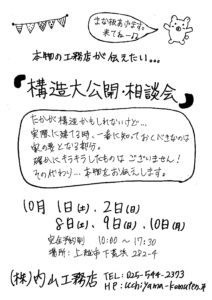 まな板あります。
来てねー♪
本物の工務店が伝えたい…
構造大公開・相談会
たかが構造かもしれないけど…
実際に建てる時、一番に知っておくべきなのは
家の要となる部分。
確かにキラキラしたものはございません!
その代わり…本物をお伝えします。
10月 1日(土)、2日(日)
8日(土)、9日(日)、10日(月)
完全予約制 10:00〜17:30
場所:上越市下荒浜 282-4
(株)内山工務店
TEL:025-544-2373
HP:uchiyama-komuten.jp